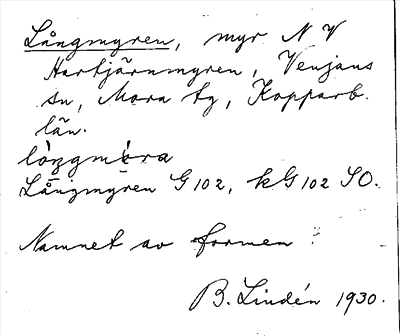 Långmyren, myr N V
Hartjärnmyren, Venjans
sn, Mora tg, Kopparb.
län.
lòŋgmòra
Långmyren G 102, kG 102 SO.
Namnet av formen :
B. Lindén 1930.